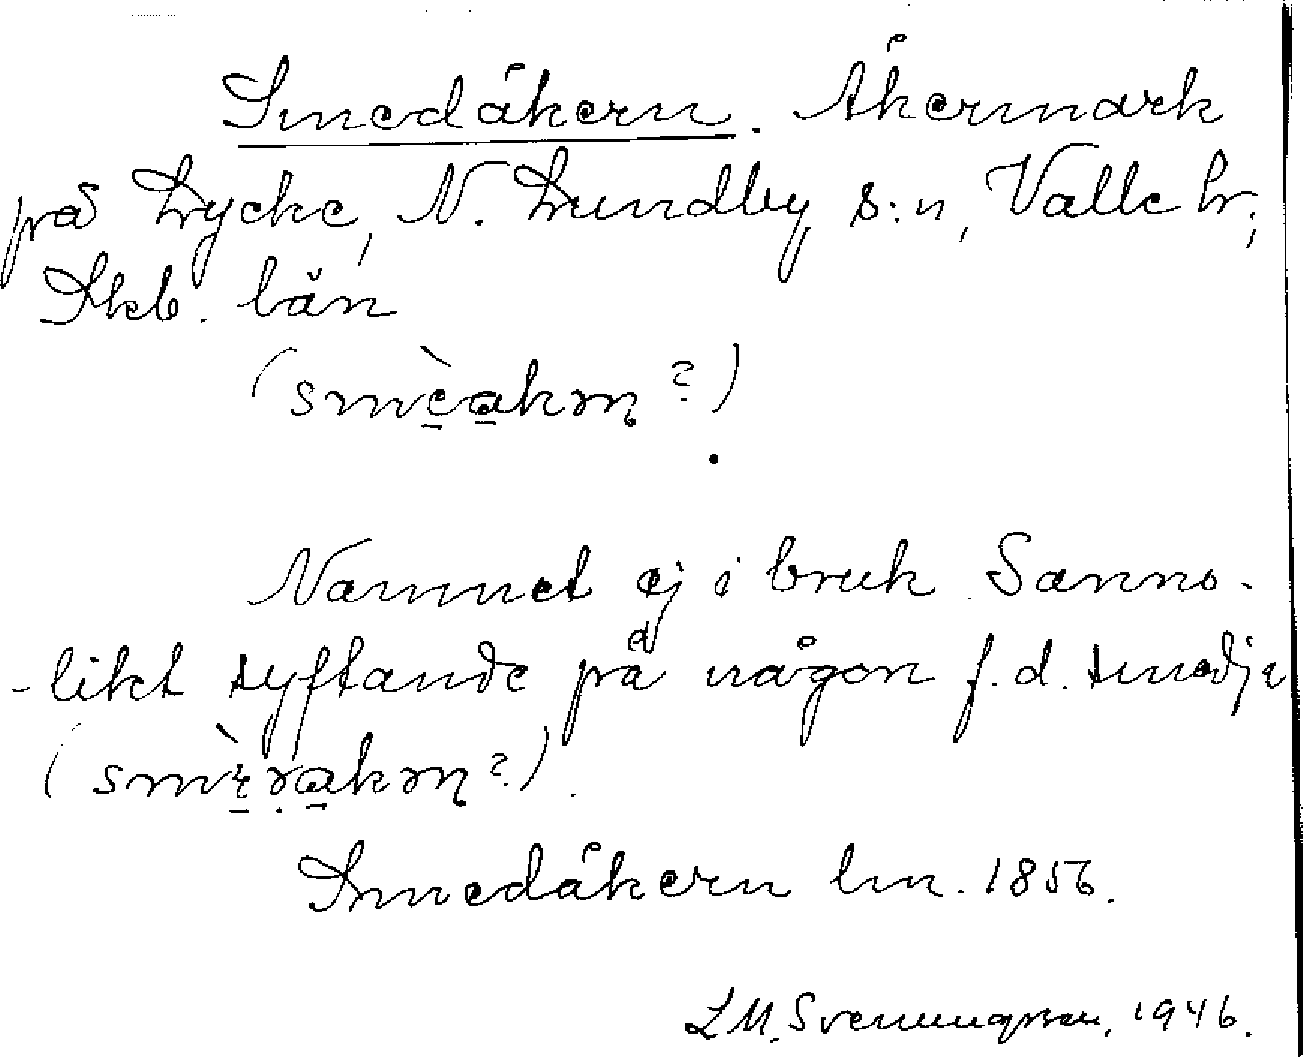 Smedåkern. Åkermark
på Lycke, N. Lundby s:n, Valle hr;
Skb. län
(smèakəɳ?)
Namnet ej i bruk. Sanno-
-likt syftande på någon f.d. smedja
Smedåkern lm. 1856.
L M. Svenungsson, 1946.